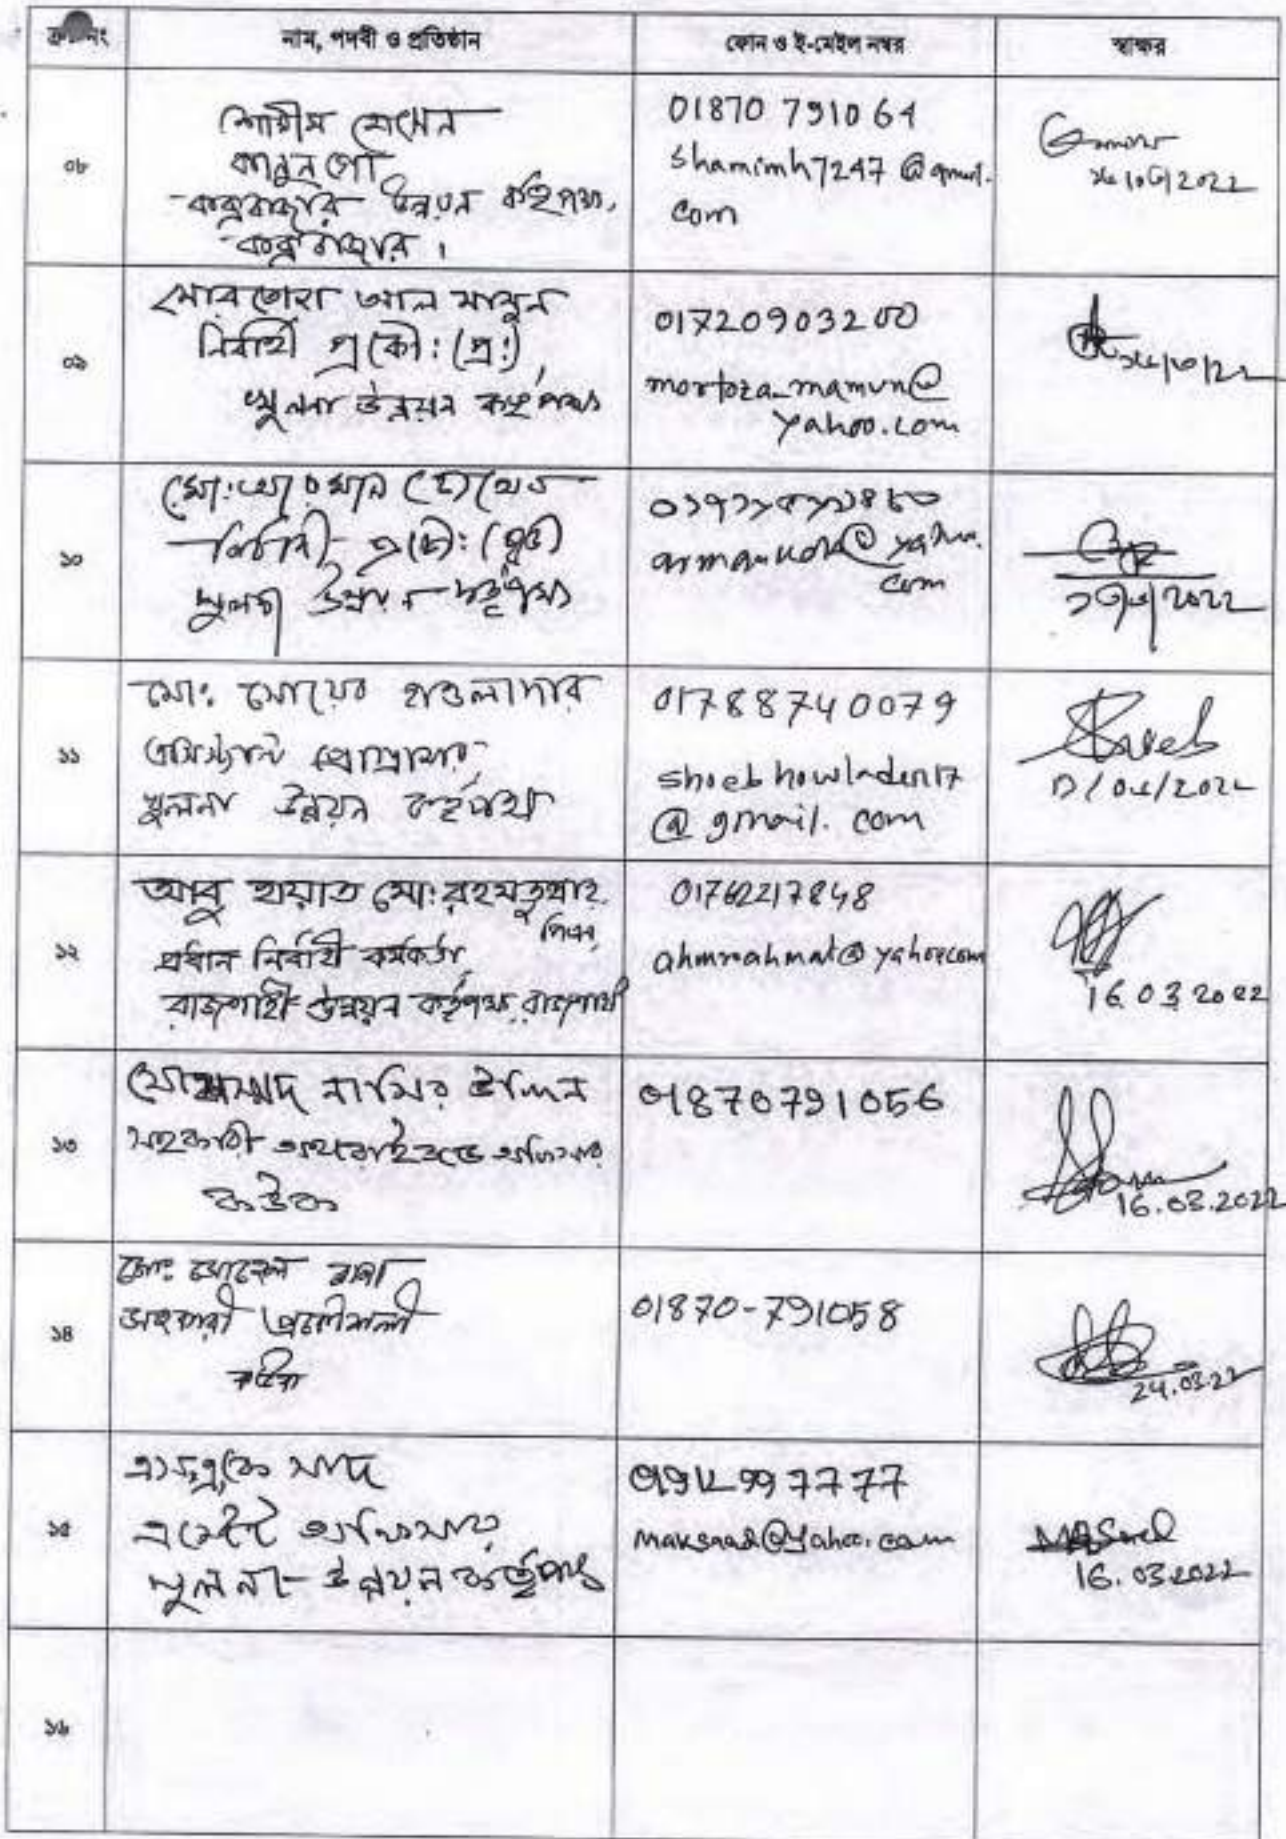 নাম, পদবী ও প্রতিষ্ঠান
ফোন ও ই-মেইল নম্বর
স্বাক্ষর
০৮
শামীম হোসেন
কানুনগো
কক্সবাজার উন্নয়ন কর্তৃপক্ষ,
কক্সবাজার।
01870 791064
shamimh7247@gmail.
com
2022
০৯
মোরতোজা আল মামুন
নির্বাহী প্রকৌ: (প্র:),
খুলনা উন্নয়ন কর্তৃপক্ষ
01720903200
mortoza_mamun@
yahoo.com
১০
মো: আরমান হোসেন
নির্বাহী প্রকৌ: (পূর্ত)
খুলনা উন্নয়ন কর্তৃপক্ষ
yahoo.
com
2022
১১
মো: সোয়েব হাওলাদার
এসিস্ট্যান্ট প্রোগ্রামার,
খুলনা উন্নয়ন কর্তৃপক্ষ
01788740079
shoebhowlader17
@gmail.com
১২
আবু হায়াত মো: রহমতুল্লাহ,
প্রধান নির্বাহী কর্মকর্তা
রাজশাহী উন্নয়ন কর্তৃপক্ষ, রাজশাহী
01762217848
16.03.2022
১৩
মোহাম্মদ নাসির উদ্দিন
সহকারী অথরাইজড অফিসার
কউক
01870791056
16.03.2022
১৪
মো: সোহেল রানা
সহকারী প্রকৌশলী
কউক
01870-791058
24.03.22
১৫
এম,এ,কে সাদ
এস্টেট অফিসার
খুলনা উন্নয়ন কর্তৃপক্ষ
maksaad@yahoo.com
16.03.2022
১৬